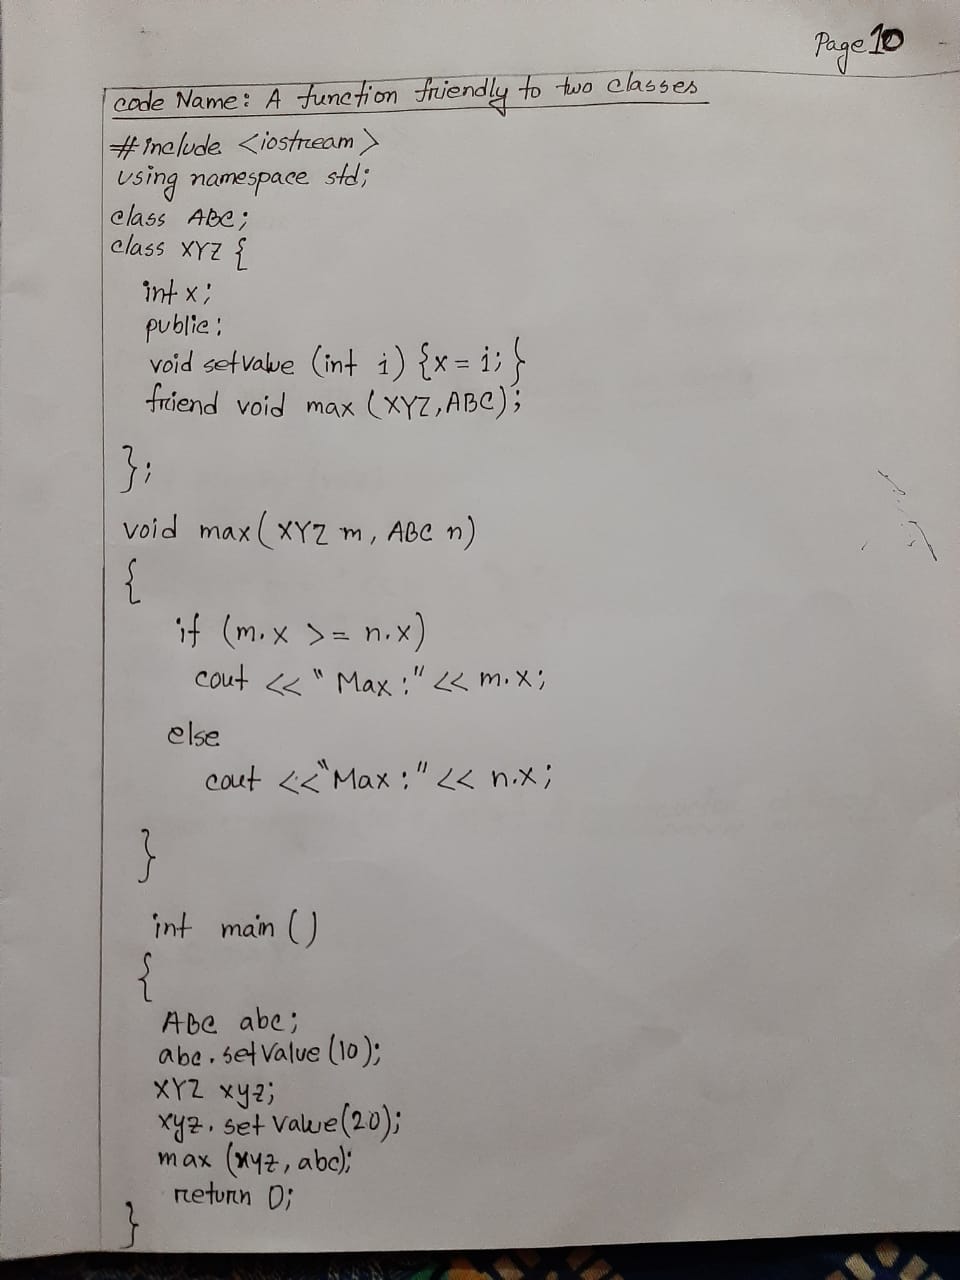 Page 10
code Name: A function friendly to two classes
#include <iostream>
using namespace std;
class ABC;
class XYZ {
int x;
public:
void setvalue (int i) {x = i; }
friend void max (XYZ,ABC);
};
void max(XYZ m, ABC n)
{
if (m.x >= n.x)
cout << "Max :" << m.x;
else
cout << "Max :" << n.x;
}
int main ()
{
ABC abc;
abc.setValue (10);
XYZ xyz;
xyz.set Value(20);
max (xyz, abc);
return 0;
}